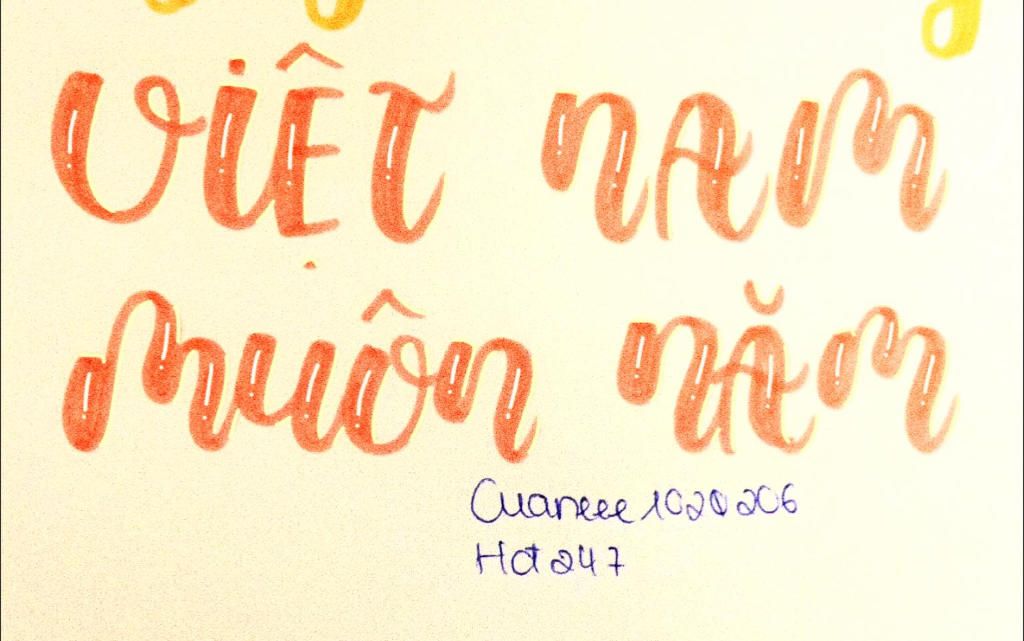 VIỆT NAM
MUÔN NĂM
Cuaneee1020206
Hot247